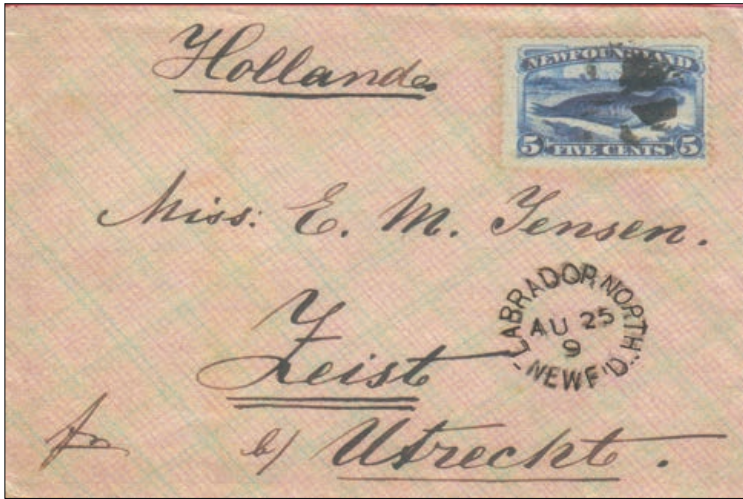 Hollande
NEWFOUNDLAND
5 FIVE CENTS 5
Miss: E. M. Jensen.
LABRADOR NORTH
AU 25
9
NEWF'D.
Zeist
b/ Utrecht.